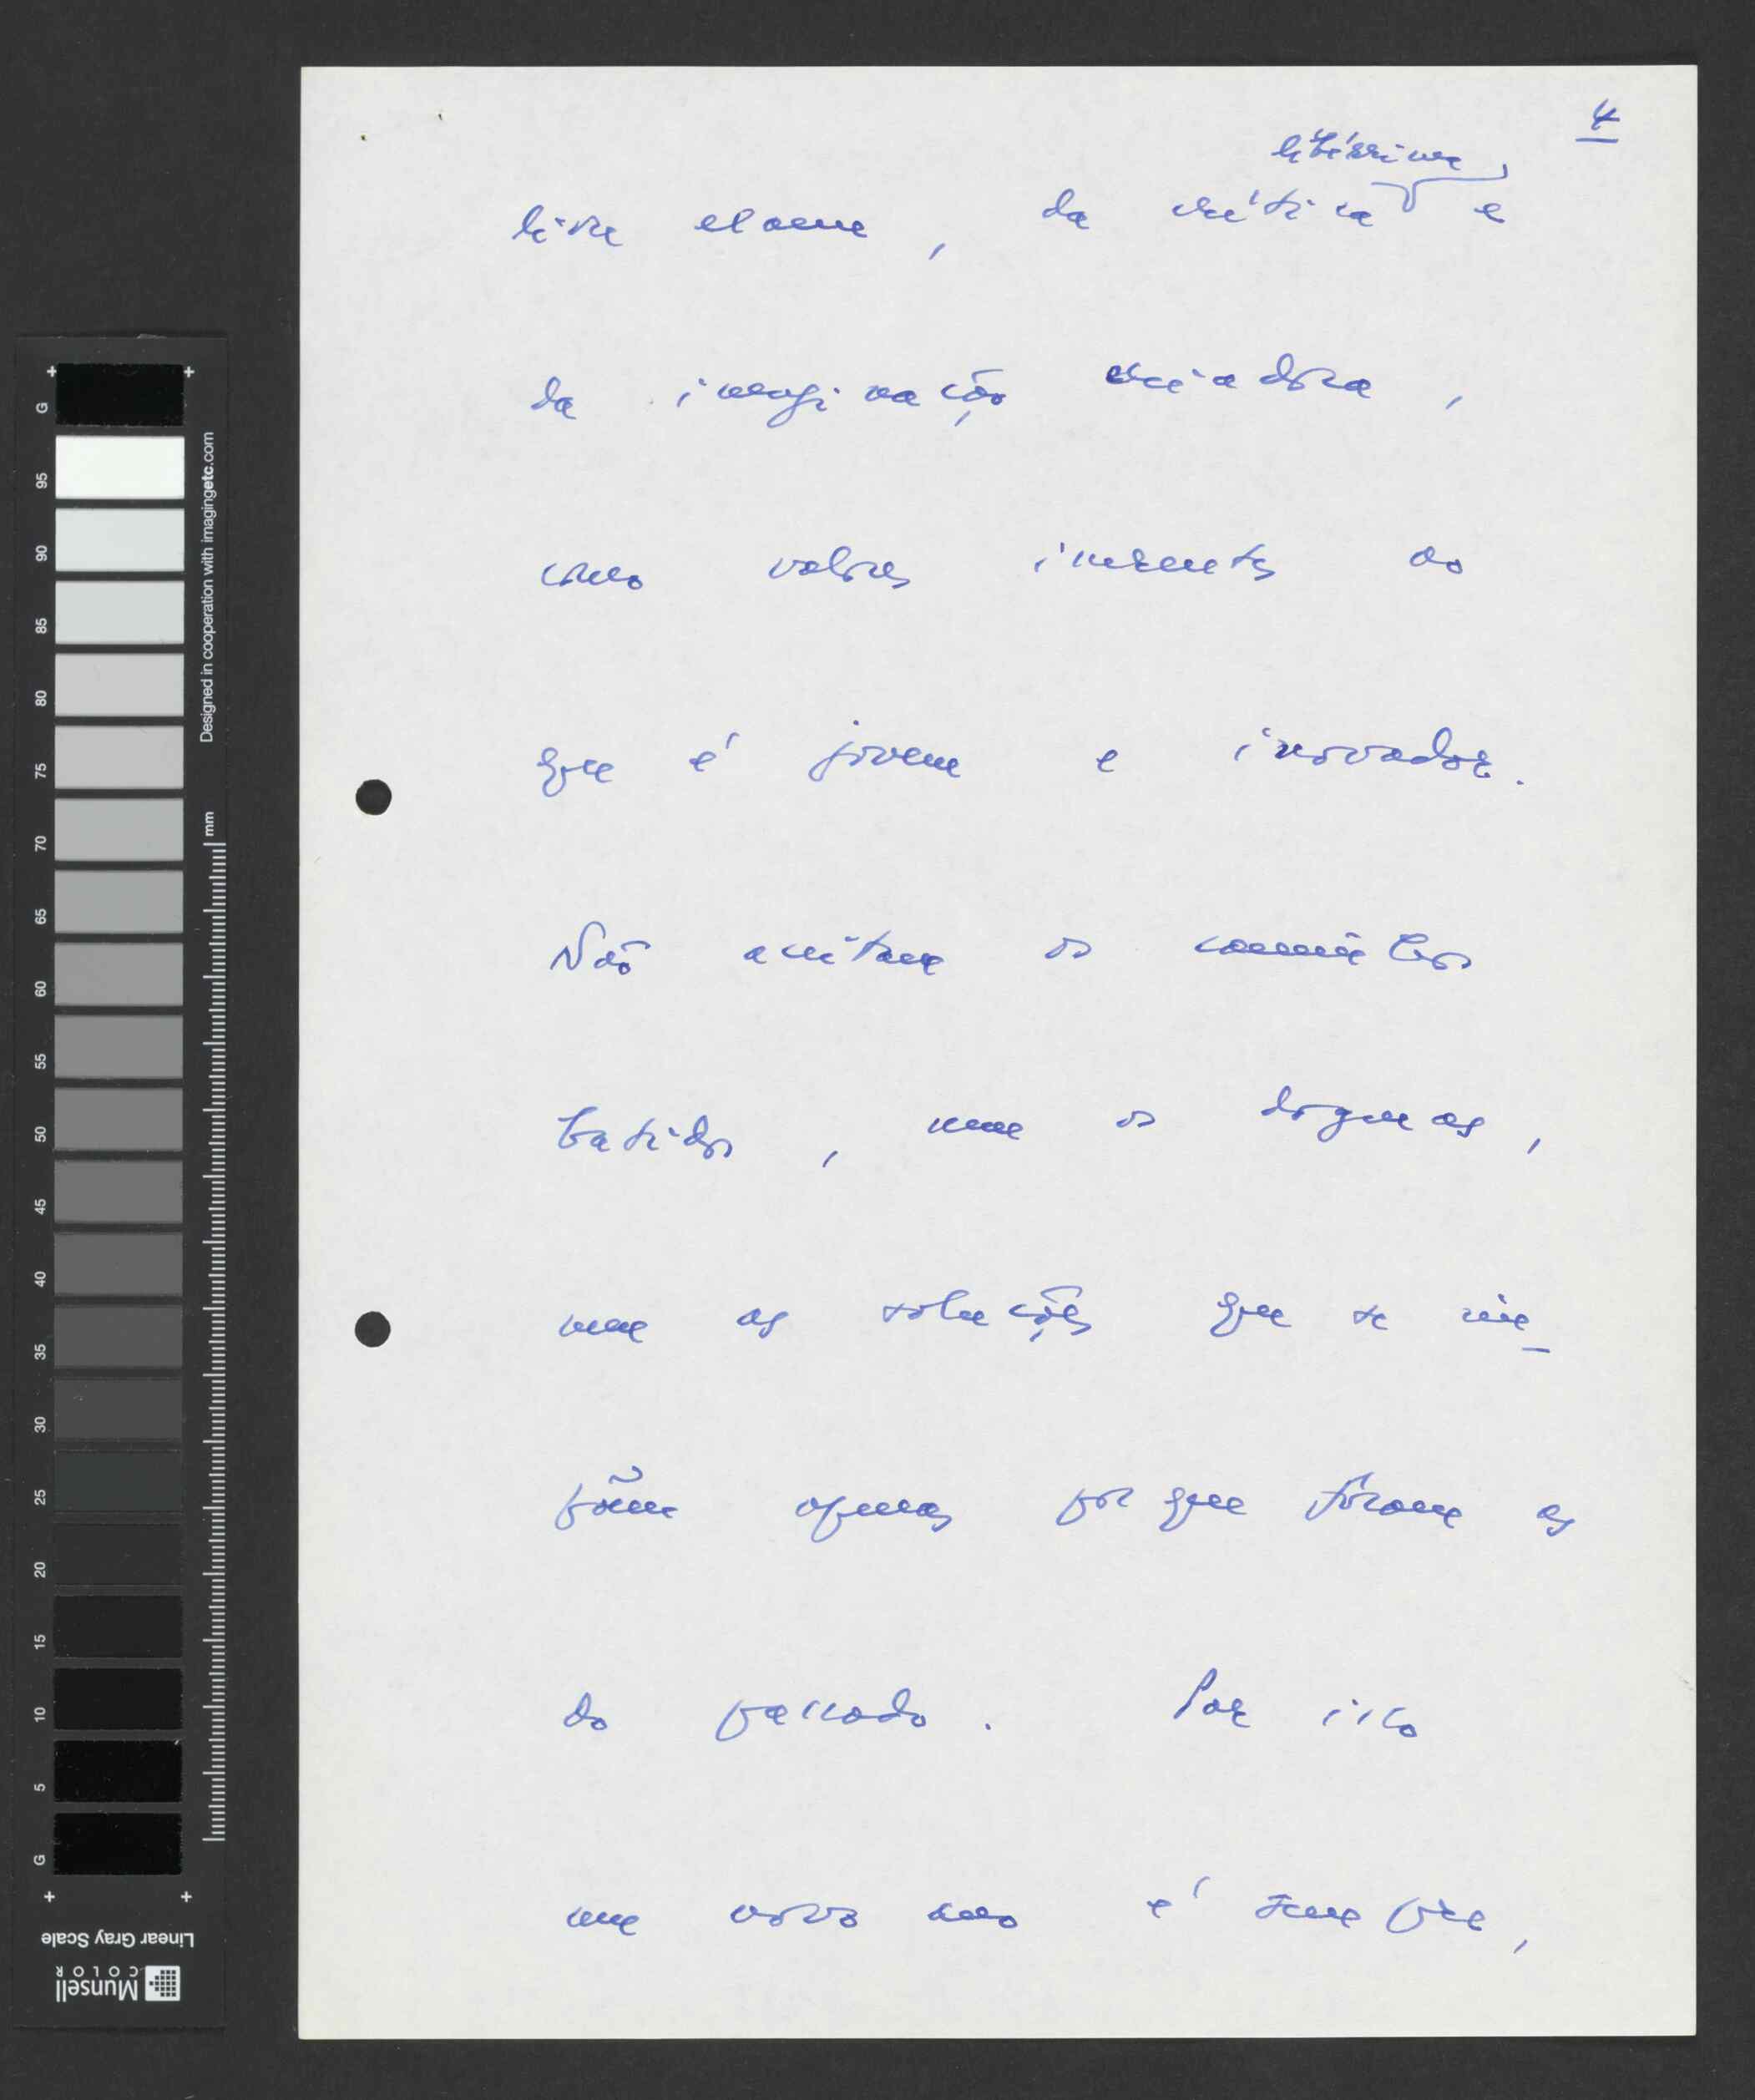 4
libérrima,
livre exame, da crítica e
da imaginação criadora,
como valores inerentes ao
que é jovem e inovador.
Não aceitam os caminhos
batidos, nem os dogmas,
nem as soluções que se im-
põem apenas porque foram as
do passado. Por isso
um novo é sempre,
G
95
90
85
80
75
70
65
60
55
50
45
40
35
30
25
20
15
10
5
G
Designed in cooperation with imagingetc.com
mm
Linear Gray Scale
Munsell
COLOR